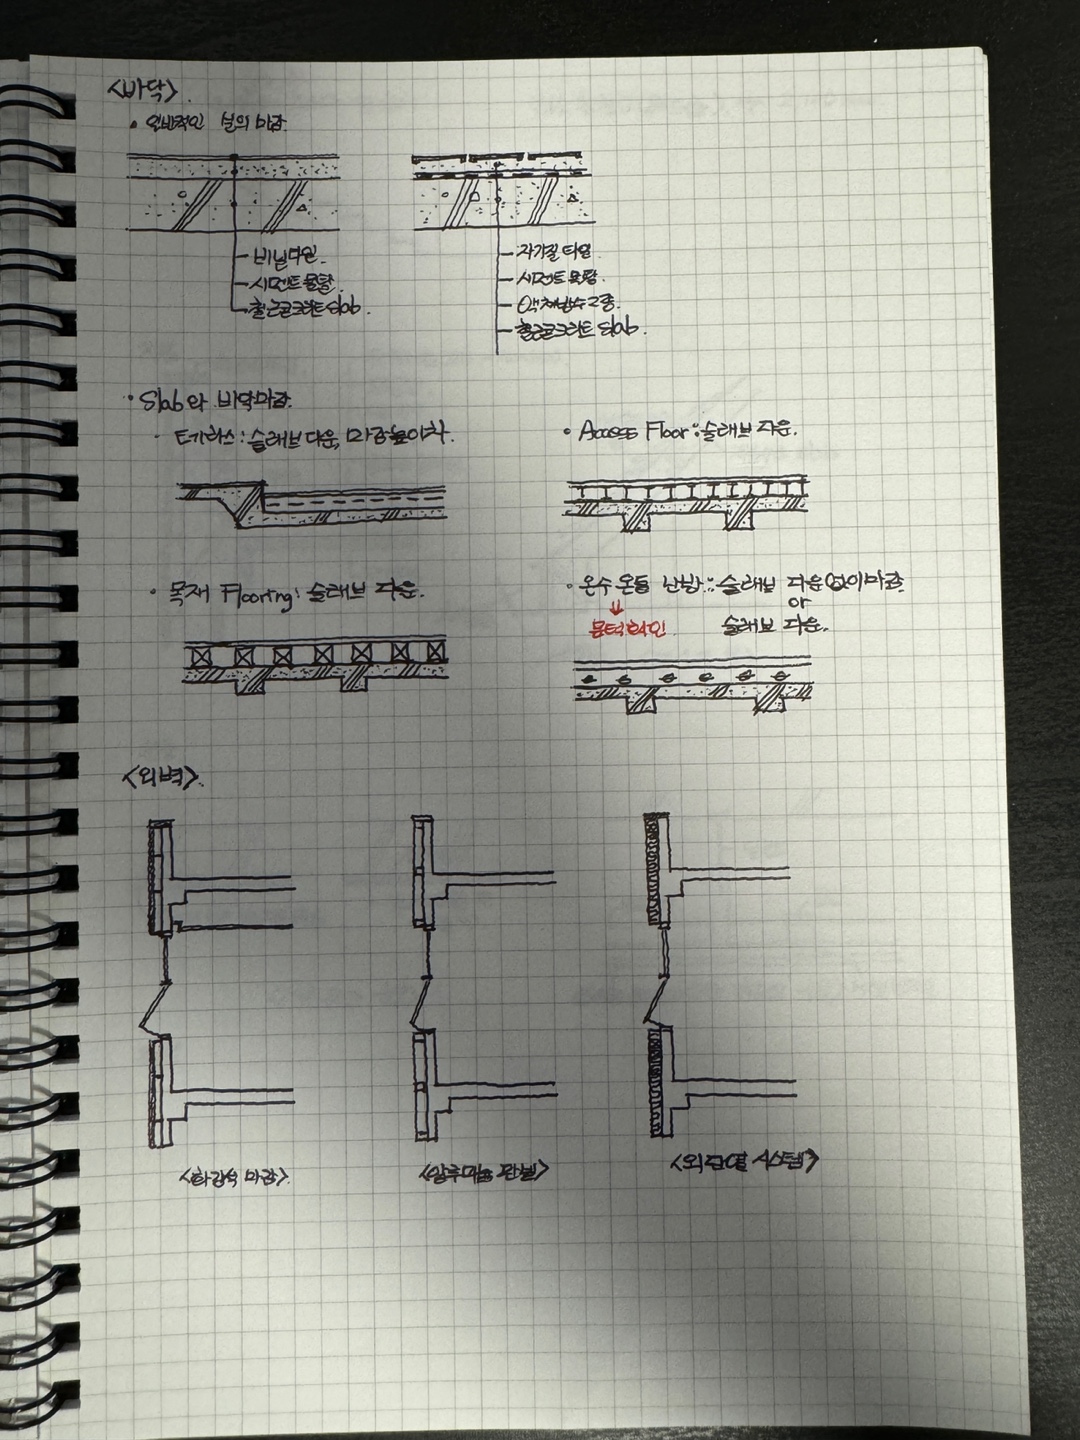 <바닥>
• 일반적인 실의 마감
비닐타일.
시멘트 몰탈
철근콘크리트 Slab.
자기질 타일
시멘트 몰탈.
액체방수 2종.
철근콘크리트 Slab.
• Slab와 바닥마감.
· 테라스 : 슬래브 다운, 마감높이차.
• Access Floor : 슬래브 다운.
• 목재 Flooring : 슬래브 다운.
• 온수 온돌 난방 : 슬래브 다운 없이 마감.
or
슬래브 다운.
문턱확인.
<외벽>
<화강석 마감>
<알루미늄 판넬>
<외단열 시스템>